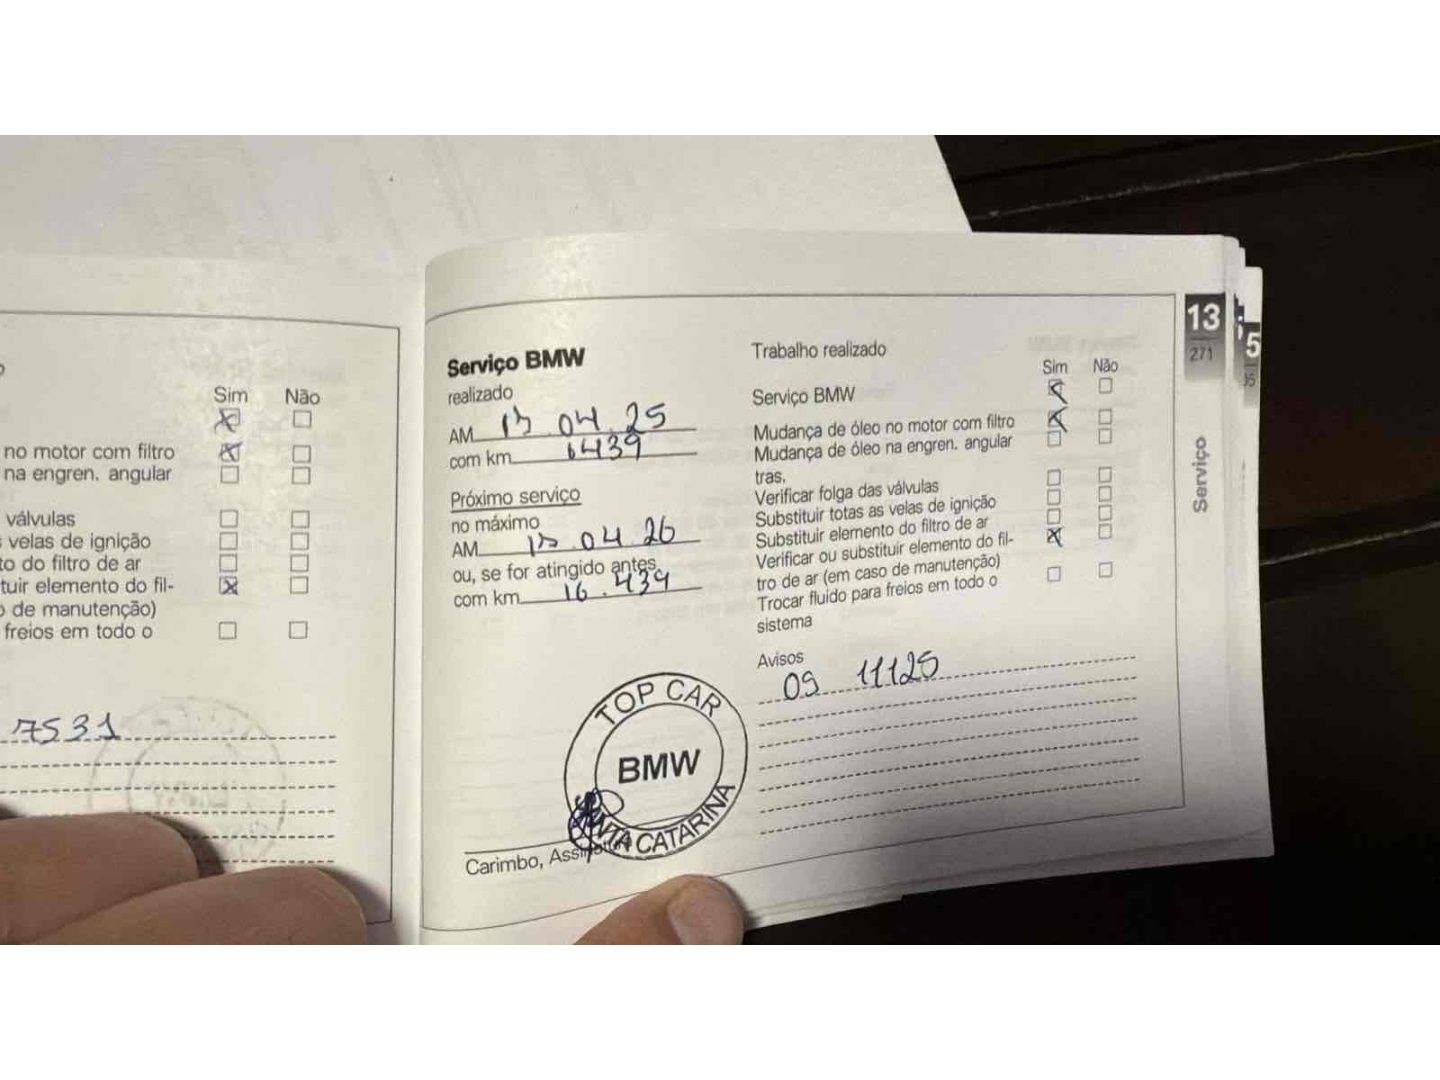 Sim Não
no motor com filtro
na engren. angular
válvulas
velas de ignição
to do filtro de ar
tuir elemento do fil-
de manutenção)
freios em todo o
7531
Serviço BMW
realizado
AM 04.25
com km 6439
Próximo serviço
no máximo
AM 04.26
ou, se for atingido antes,
com km 16.439
TOP CAR
BMW
CATARINA
Carimbo,
Trabalho realizado
Sim Não
Serviço BMW
Mudança de óleo no motor com filtro
Mudança de óleo na engren. angular
tras.
Verificar folga das válvulas
Substituir totas as velas de ignição
Substituir elemento do filtro de ar
Verificar ou substituir elemento do fil-
tro de ar (em caso de manutenção)
Trocar fluido para freios em todo o
sistema
Avisos
OS 11125
13
271
Serviço
5